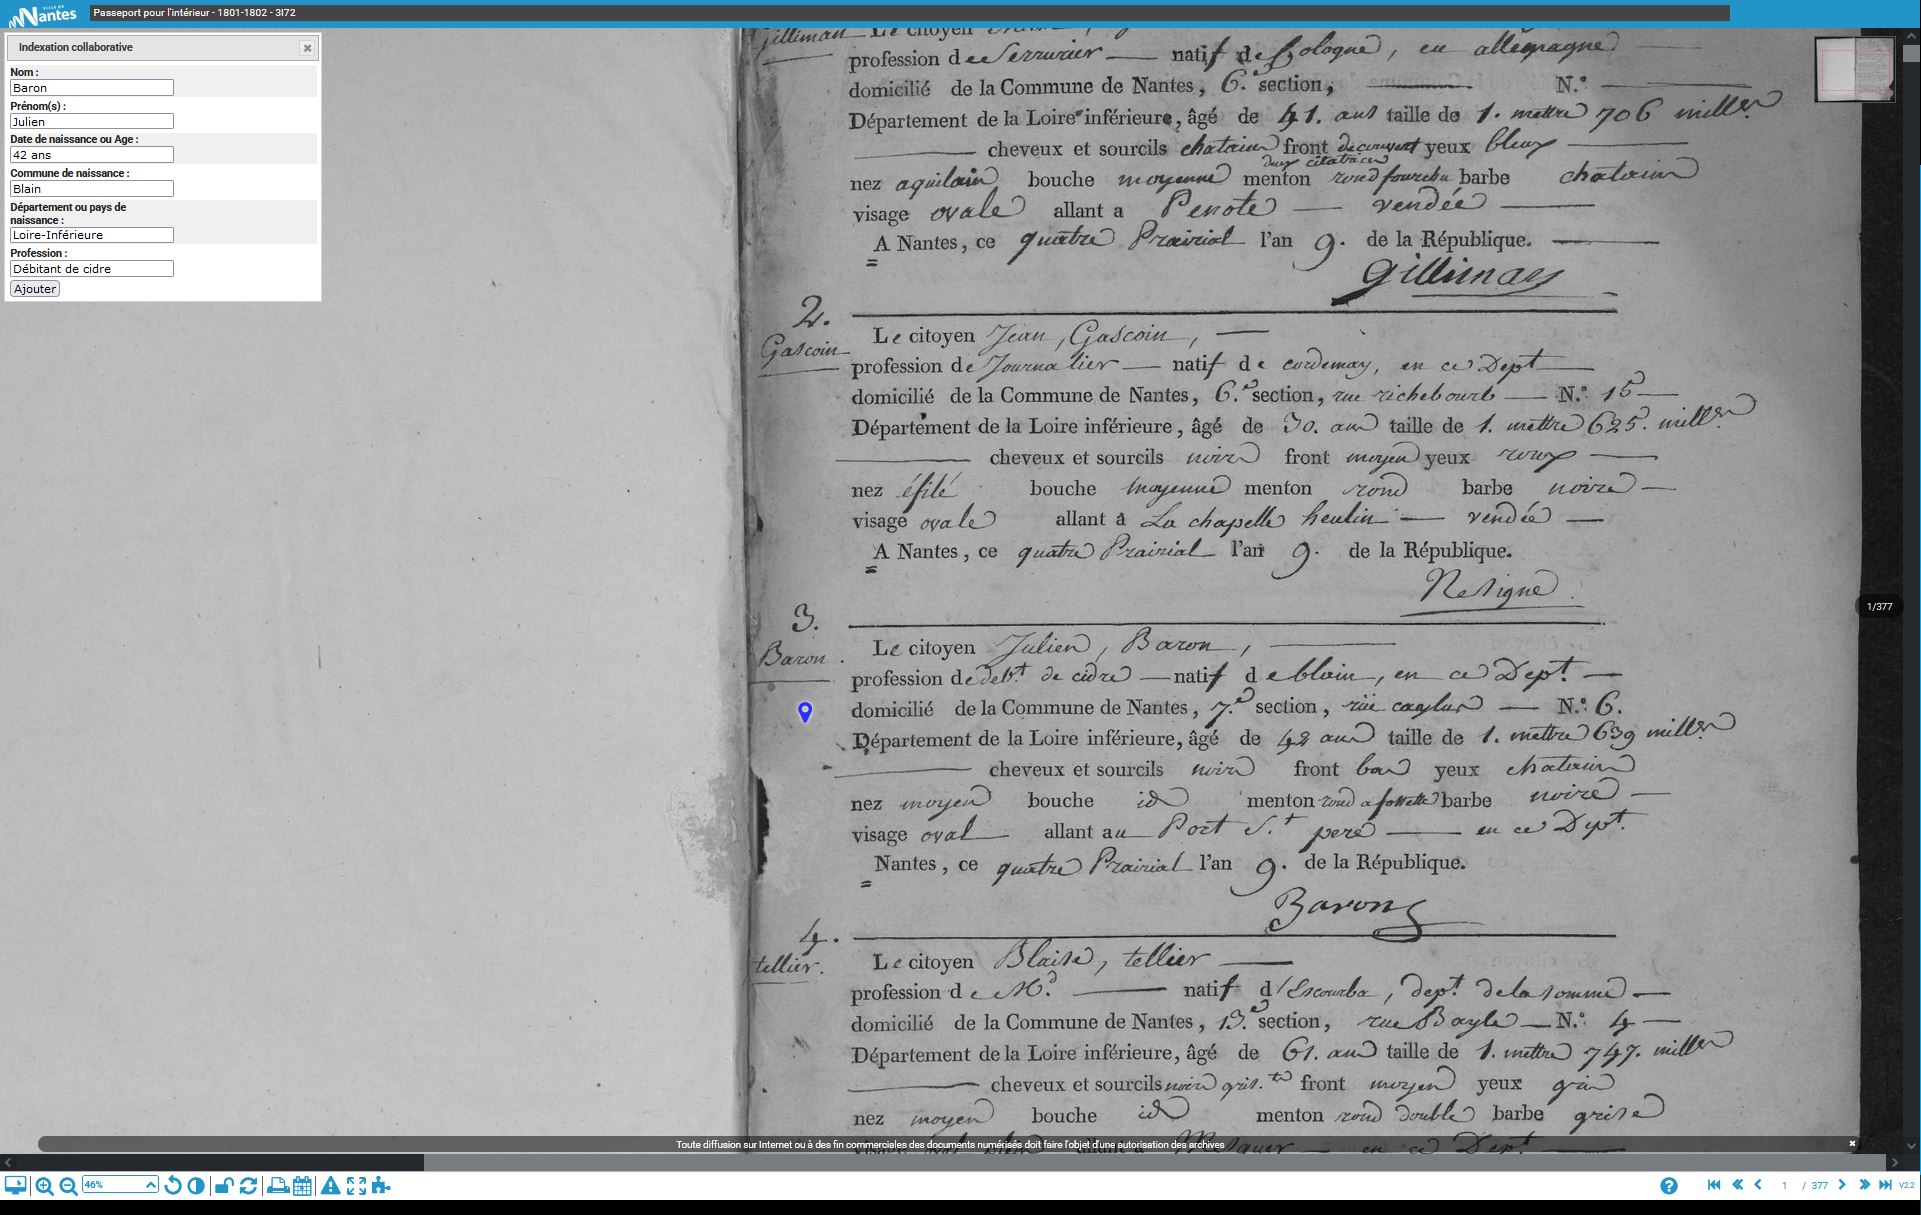 VILLE DE
Nantes
Passeport pour l'intérieur - 1801-1802 - 3I72
Indexation collaborative
Nom :
Baron
Prénom(s) :
Julien
Date de naissance ou Age :
42 ans
Commune de naissance :
Blain
Département ou pays de
naissance :
Loire-Inférieure
Profession :
Débitant de cidre
Ajouter
Gilliman Le citoyen
profession de Serrurier natif de Cologne, en allemagne
domicilié de la Commune de Nantes, 6.e section, N.o
Département de la Loire inférieure, âgé de 41. ans taille de 1. mettre 706 mill.es
cheveux et sourcils chatain front decouvert yeux bleux
deux citatrices
nez aquilain bouche moyenne menton rond fourchu barbe chatain
visage ovale allant a Penote vendée
A Nantes, ce quatre Prairial l'an 9. de la République.
Gilliman
2.
Gascoin Le citoyen Jean, Gascoin,
profession de Journalier natif de cordemay, en ce Dept
domicilié de la Commune de Nantes, 6.e section, rue richebourb N.o 15
Département de la Loire inférieure, âgé de 30. ans taille de 1. mettre 625. mill.es
cheveux et sourcils noirs front moyen yeux roux
nez éfilé bouche moyenne menton rond barbe noire
visage ovale allant à La chapelle heulin vendée
A Nantes, ce quatre Prairial l'an 9. de la République.
Ne signe
3.
Baron. Le citoyen Julien, Baron,
profession de deb.t de cidre natif de blain, en ce Dep.t
domicilié de la Commune de Nantes, 7.e section, rüe caylus N.o 6.
Département de la Loire inférieure, âgé de 42 ans taille de 1. mettre 639 mill.es
cheveux et sourcils noirs front bas yeux chatain
nez moyen bouche id menton rond a fossette barbe noire
visage oval allant au Port S.t pere en ce Dep.t
Nantes, ce quatre Prairial l'an 9. de la République.
Baron
4.
tellier. Le citoyen Blaise, tellier
profession de M.d natif d'Escourba, dep.t de la somme
domicilié de la Commune de Nantes, 13.e section, rue Bayle N.o 4
Département de la Loire inférieure, âgé de 61. ans taille de 1. mettre 747. mill.es
cheveux et sourcils noirs gris.ts front moyen yeux gris
nez moyen bouche id menton rond double barbe grise
visage oval plein allant a Mesquer en ce Dept
Toute diffusion sur Internet ou à des fin commerciales des documents numérisés doit faire l'objet d'une autorisation des archives
1/377
46%
1 / 377
V2.2